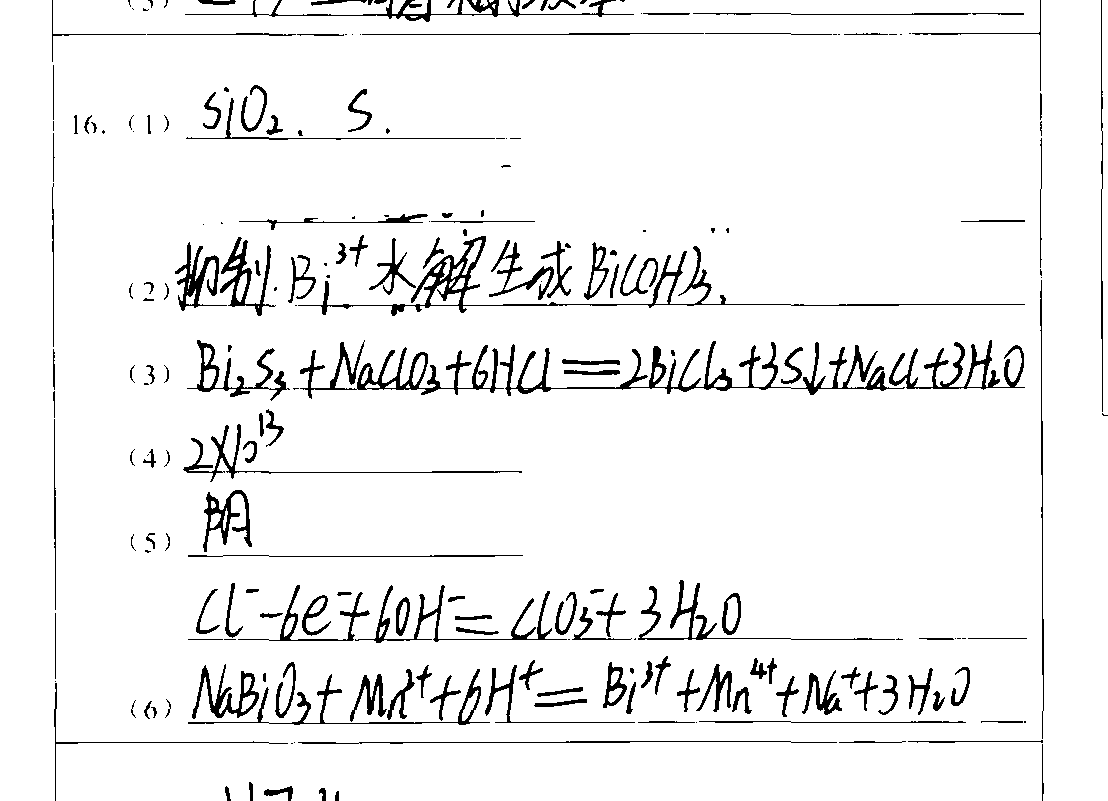 (5)
16. (1) SiO₂. S.
(2) 抑制Bi³⁺水解生成Bi(OH)₃.
(3) Bi₂S₃+NaClO₃+6HCl══2BiCl₃+3S↓+NaCl+3H₂O
(4) 2×10¹³
(5) 阴
Cl⁻-6e⁻+6OH⁻=ClO₃⁻+3H₂O
(6) NaBiO₃+Mn²⁺+6H⁺=Bi³⁺+Mn⁴⁺+Na⁺+3H₂O